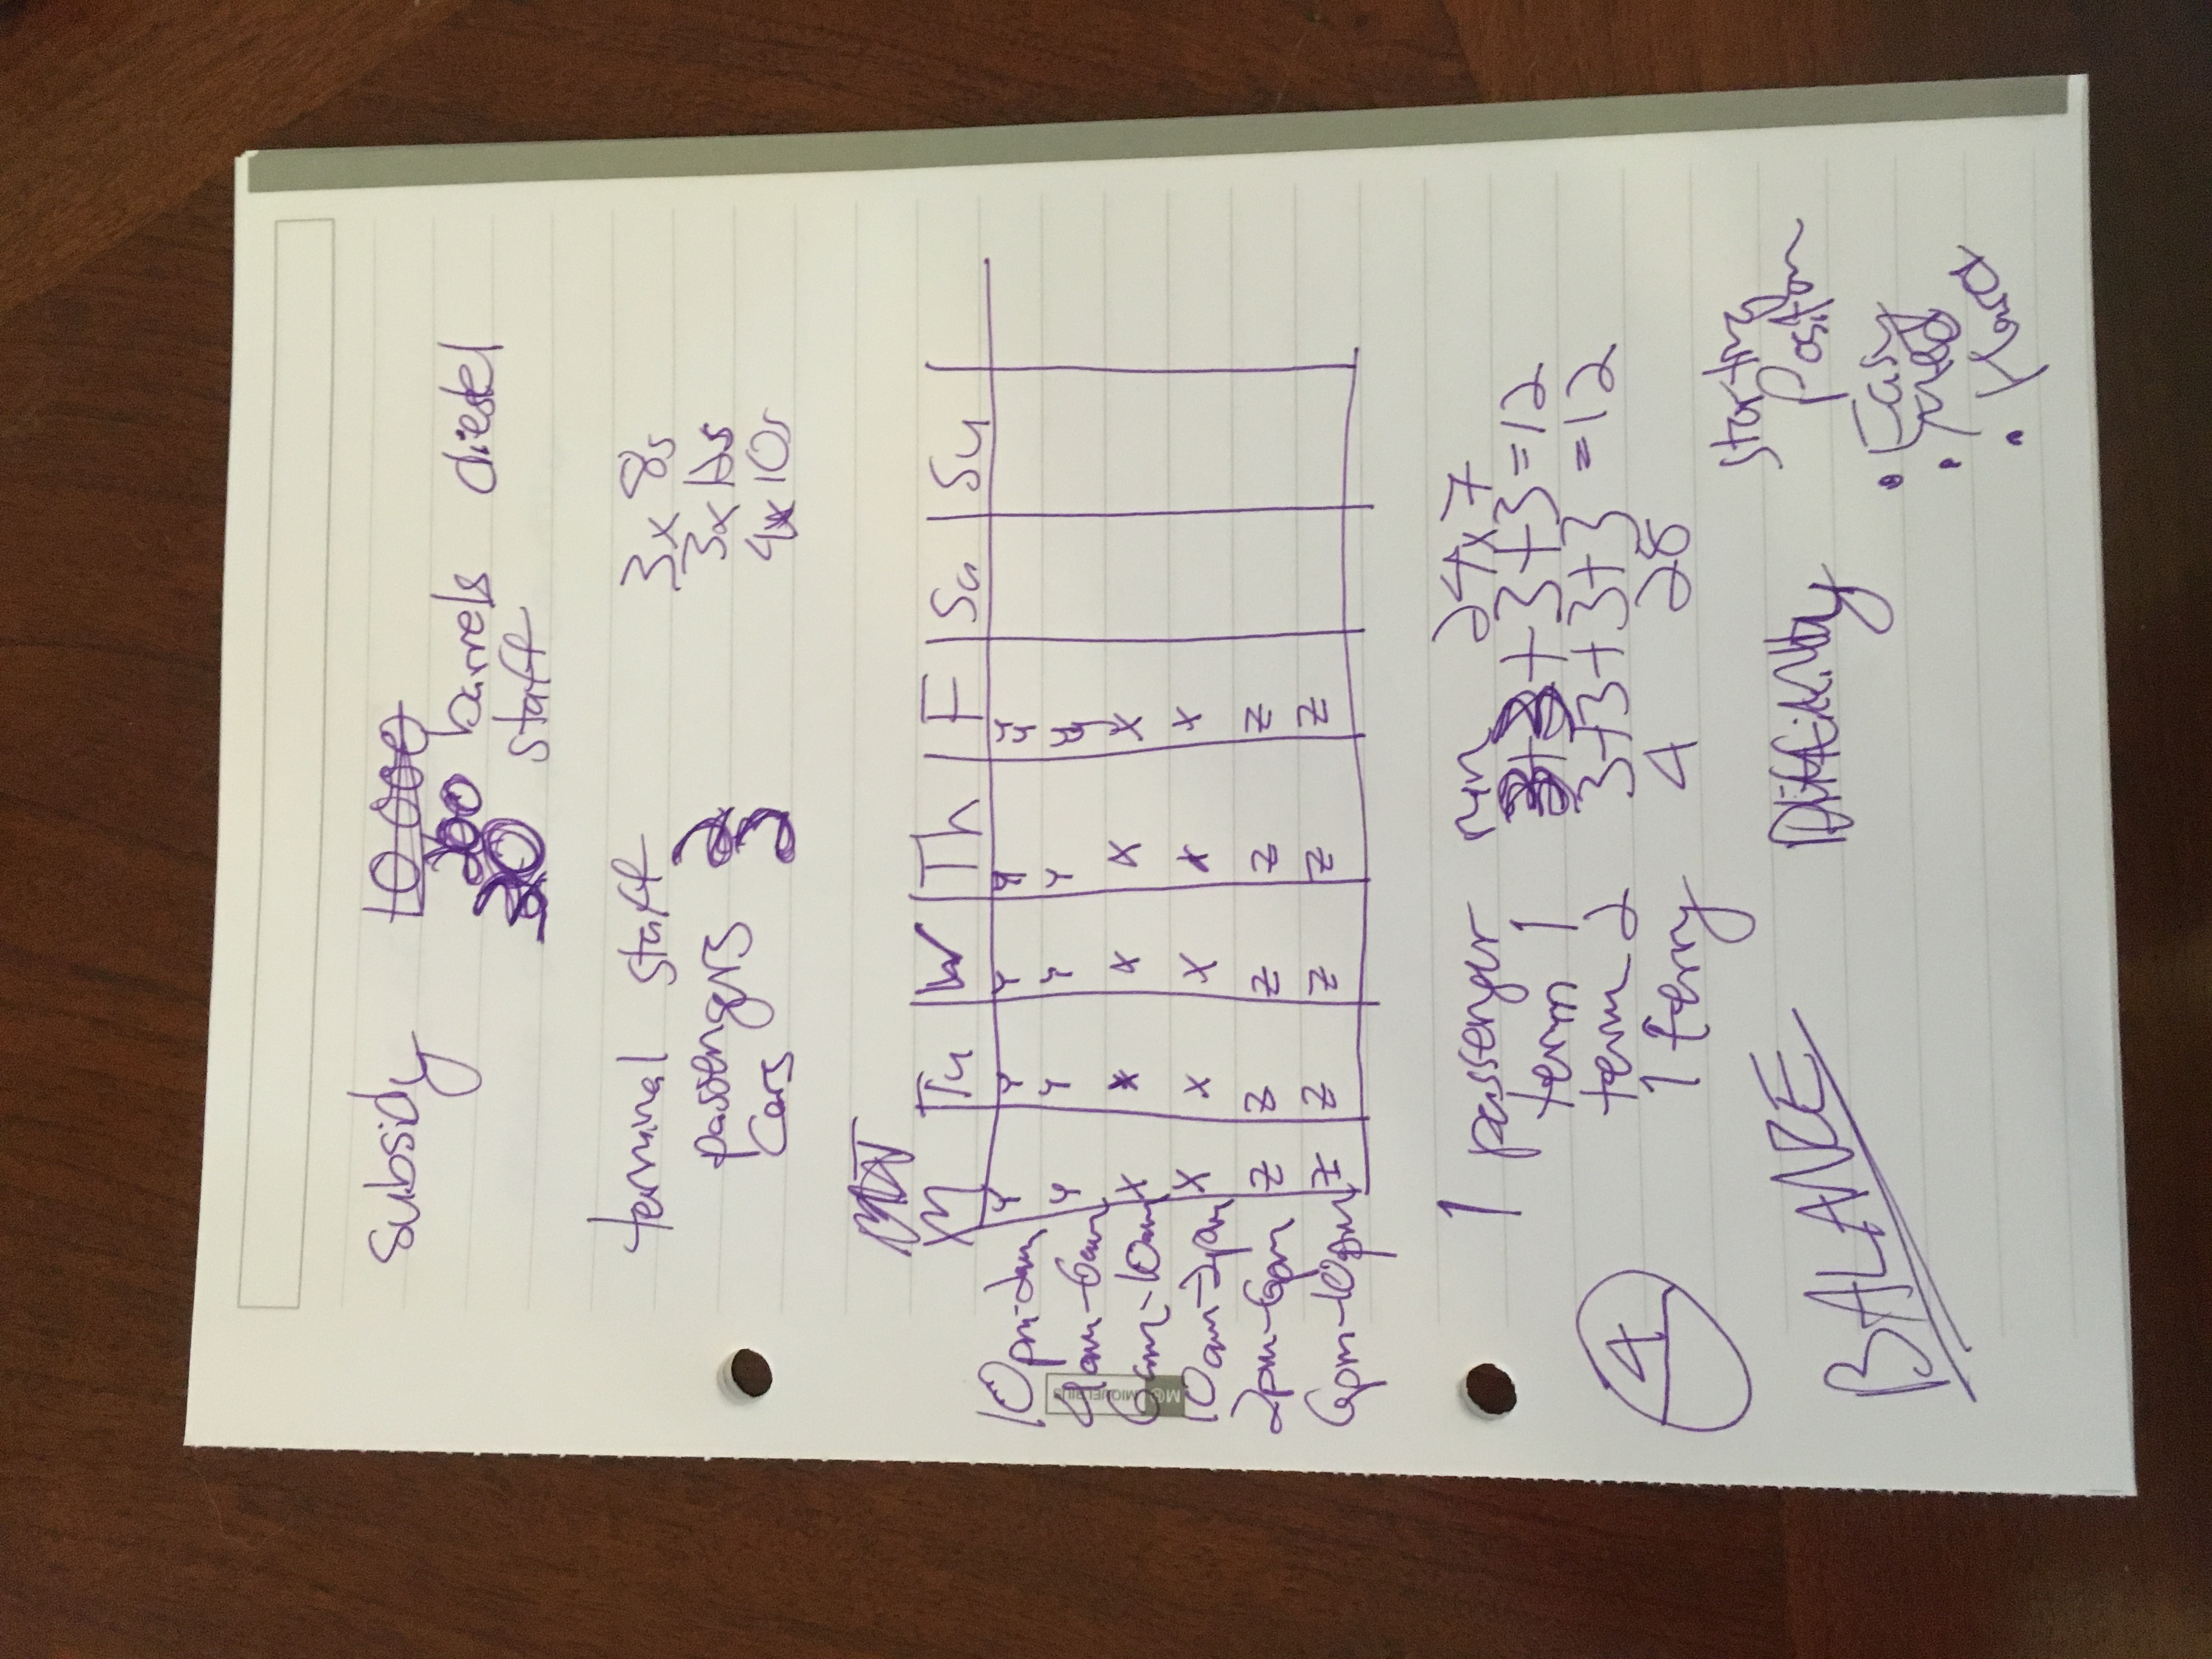 subsidy 10 000
200 barrels diesel
30 staff
terminal staff 3x 8s
passengers 2 3x 12s
cars 4x 10s
M Tu W Th F Sa Su
10pm-2am Y Y Y Y Y
4am-6am Y Y Y Y Y
6am-10am X X X X X
10am-2pm X X X X X
2pm-6pm Z Z Z Z Z
6pm-10pm Z Z Z Z Z
1 passenger run 24x7
term 1 3+3+3+3=12
term 2 3+3+3+3 =12
4
1 ferry 4 28
BALANCE
Difficulty
Starting
Position
• Easy
• Med
• Hard
MIQUELRIUS